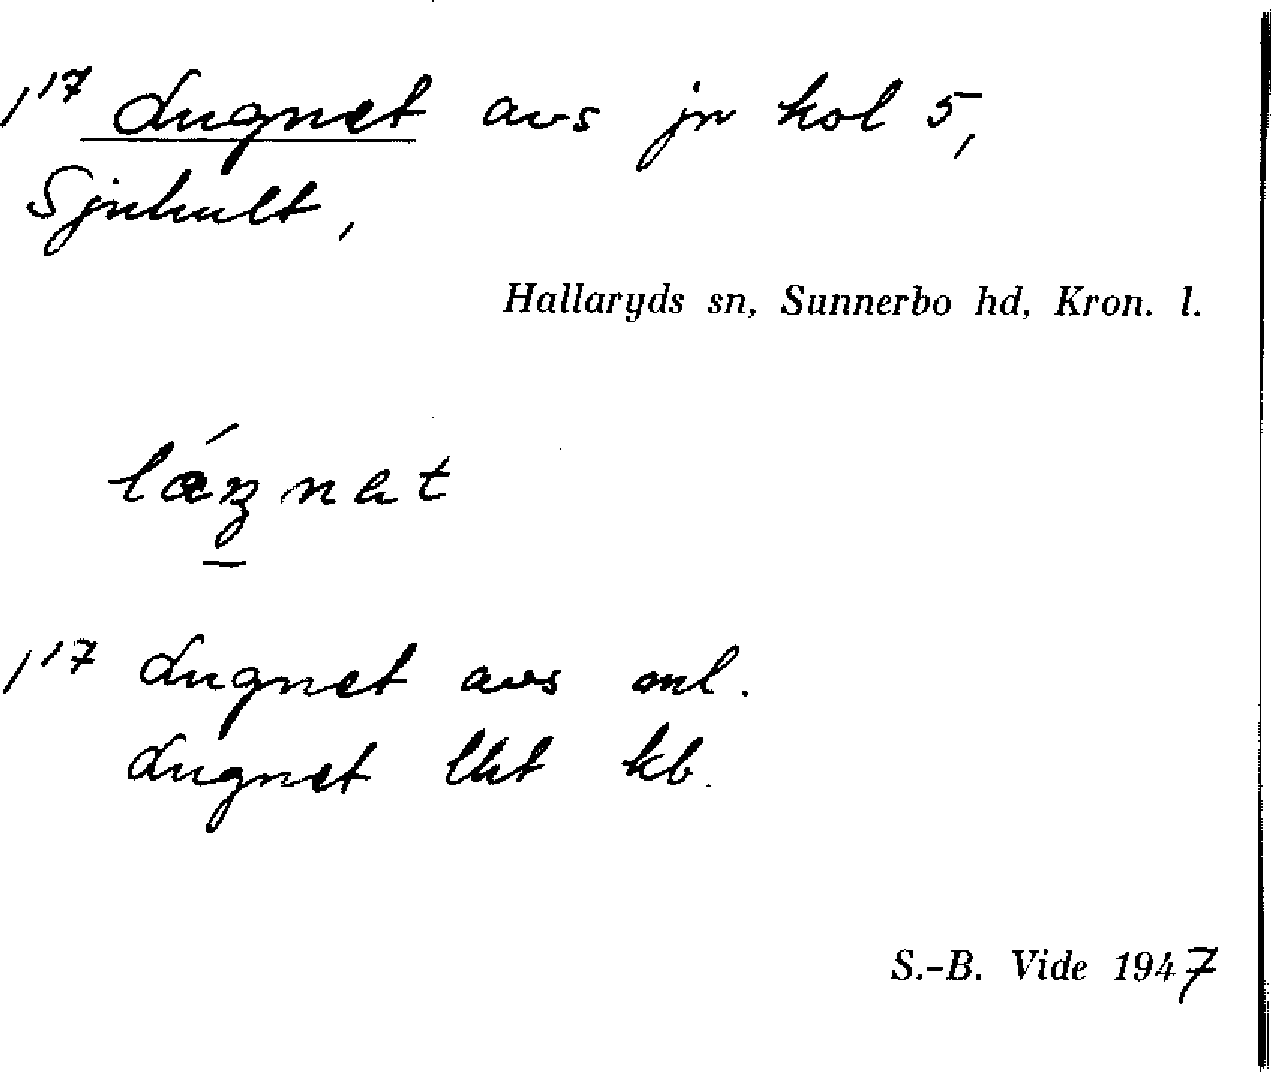 1¹⁷ Lugnet avs jr kol 5,
Sjöhult,
Hallaryds sn, Sunnerbo hd, Kron. l.
1¹⁷ Lugnet avs ml.
Lugnet lht kb.
S.-B. Vide 1947